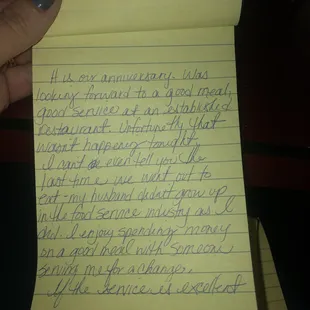 It is our anniversary. Was
looking forward to a good meal,
good service at an established
restaurant. Unfortunetly that
wasn't happening tonight.
I cant even tell you the
last time we went out to
eat - my husband didn't grow up
in the food service industry as I
did. I enjoy spending money
on a good meal with someone
serving me for a change.
If the service is excellent